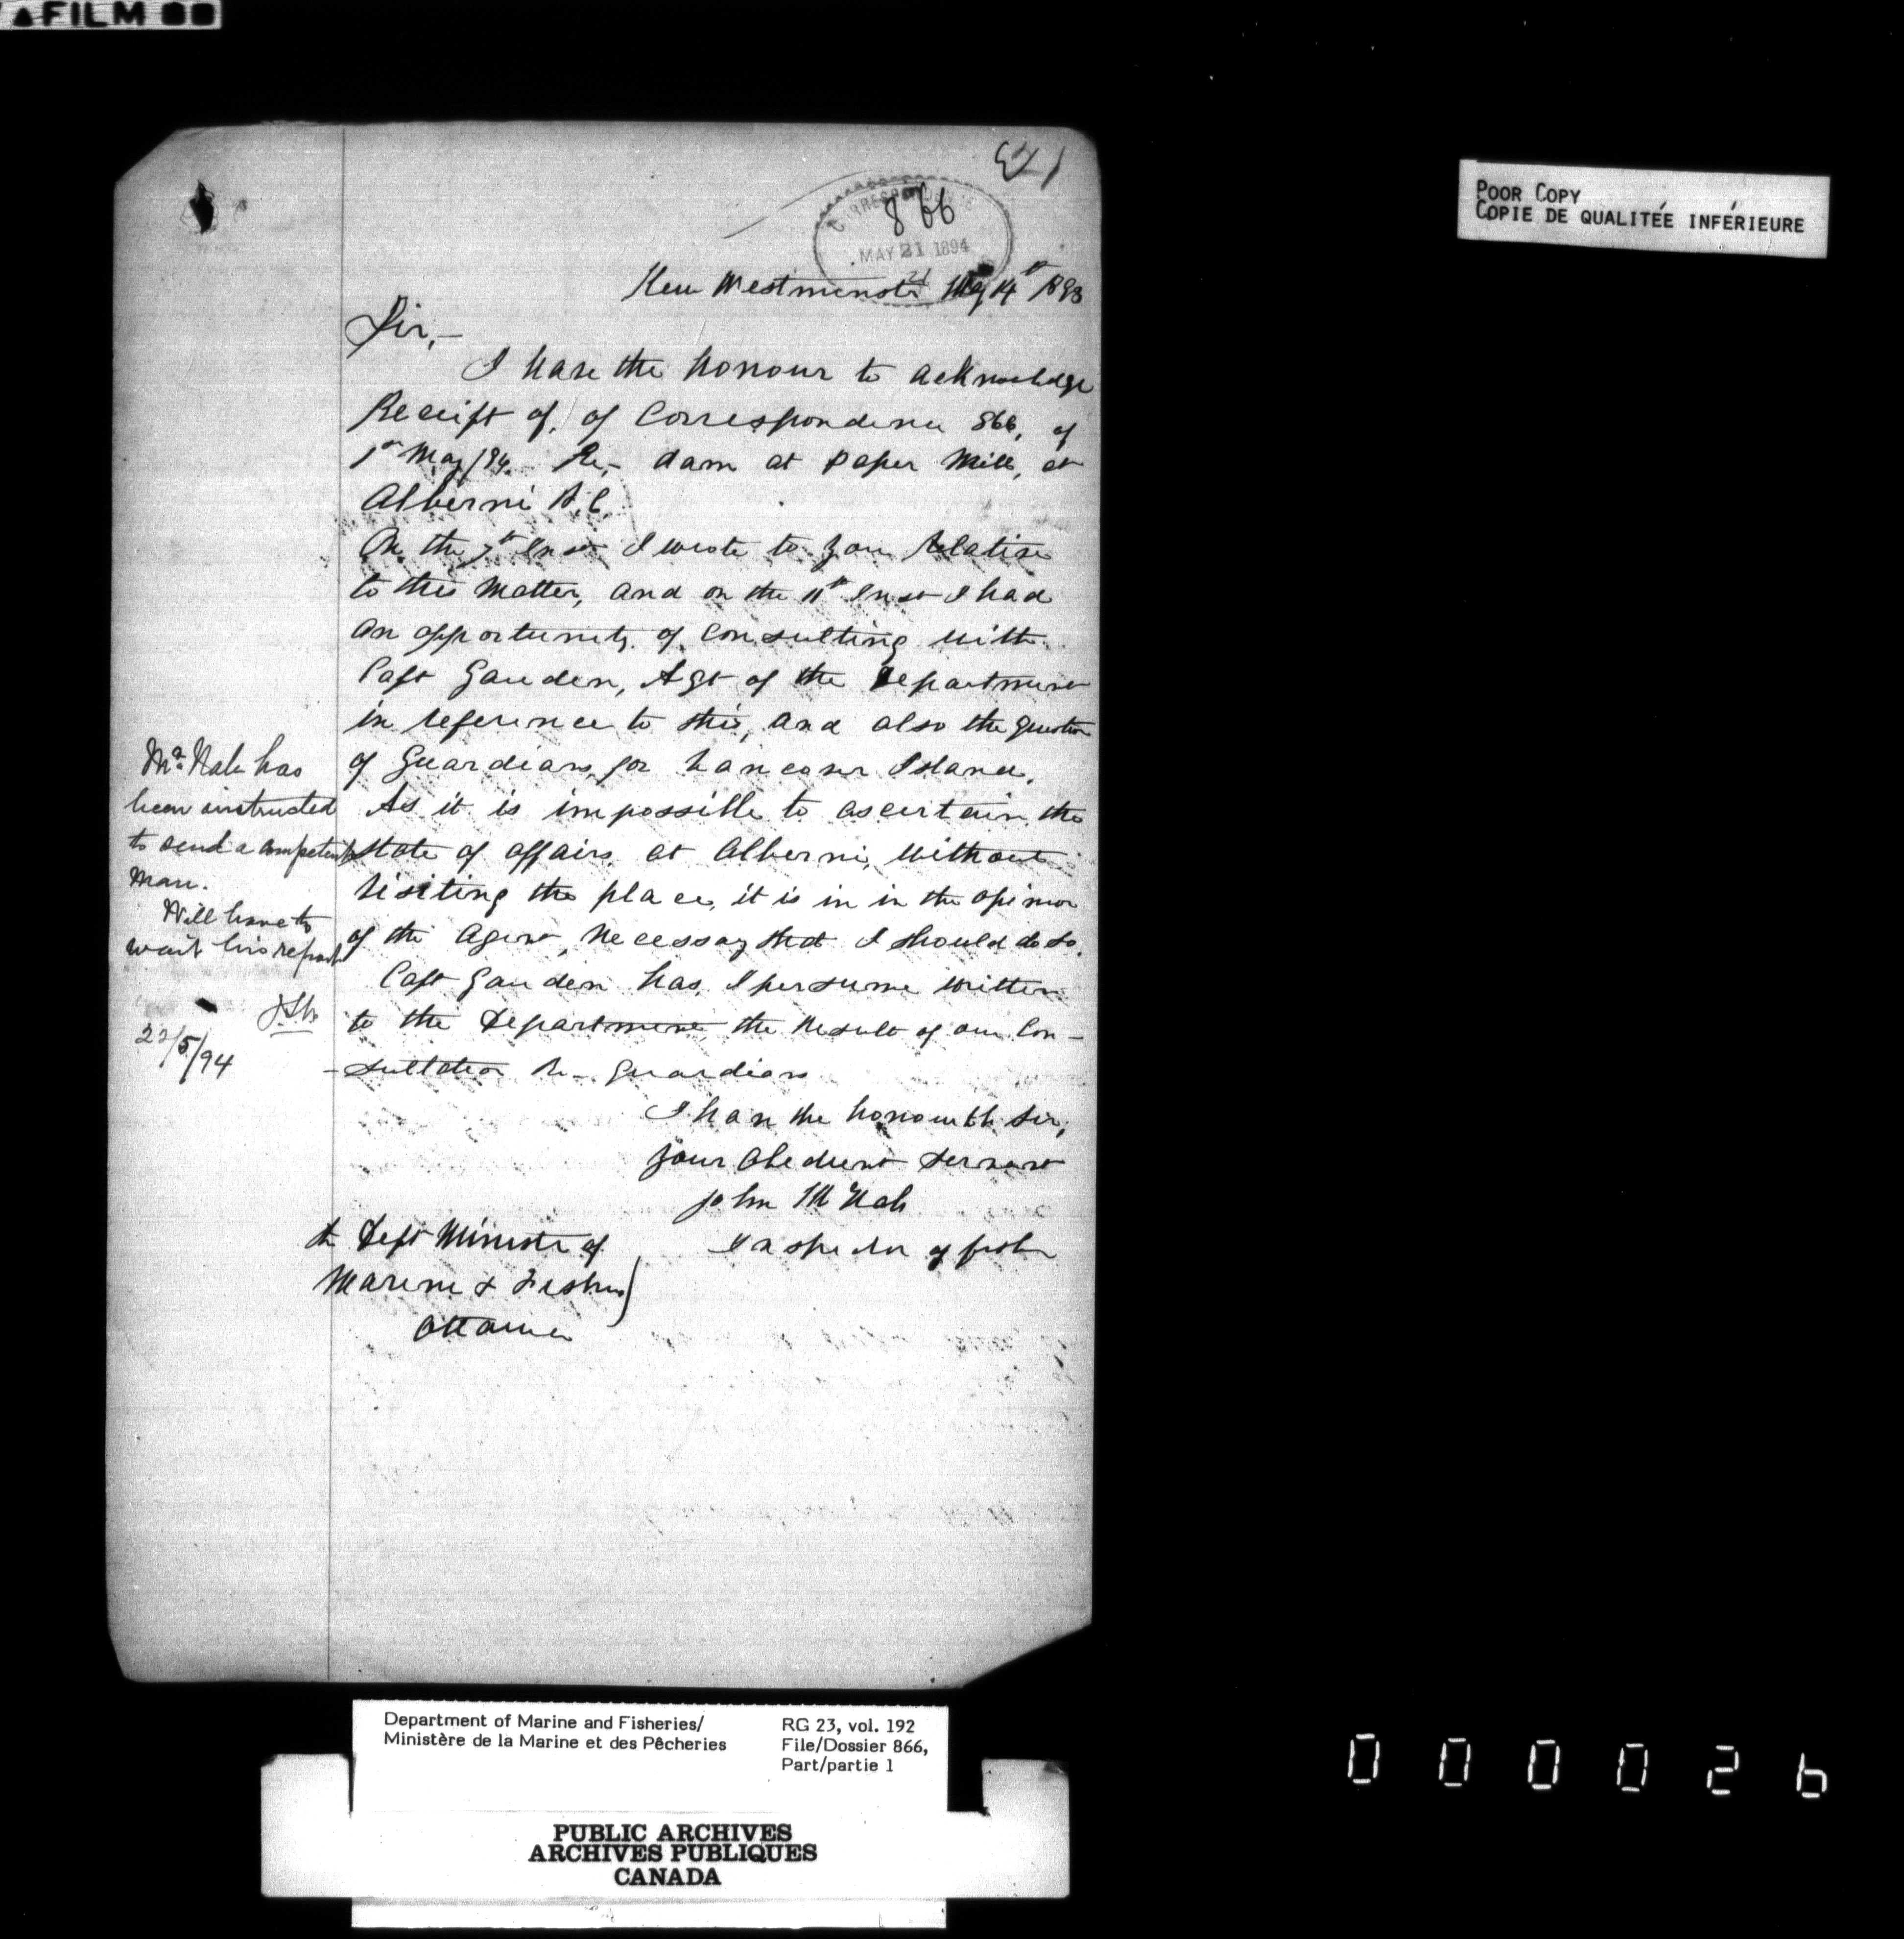 FILM
POOR COPY
COPIE DE QUALITÉE INFÉRIEURE
866
MAY 21 1894
New Westminster May 14th 1893
Sir,—
I have the honour to acknowledge
Receipt of, of Correspondence 866, of
1st May/94. Re,- dam at Paper Mill, at
Alberni B.C.
On the 7th Inst I wrote to you Relative
to this Matter, and on the 11th Inst I had
an opportunity of Consulting with
Capt Gauden, Agt of the Department
in reference to this, and also the question
of Guardians for Vancouver Island.
As it is impossible to ascertain the
state of affairs at Alberni, without
Visiting the place, it is in in the opinion
of the Agent, Necessary that I should do so.
Capt Gauden has, I persume written
to the Department the Result of our Con-
-sultation Re- Guardians
I have the honour to be Sir,
your Obedient Servant
John McNab
Inspector of
The Dept Minister of
Marine & Fisheries
Ottawa
McNab has
been instructed
to send a competent
man.
Will have to
wait his report
22/5/94
Department of Marine and Fisheries/
Ministère de la Marine et des Pêcheries
RG 23, vol. 192
File/Dossier 866,
Part/partie 1
PUBLIC ARCHIVES
ARCHIVES PUBLIQUES
CANADA
000026